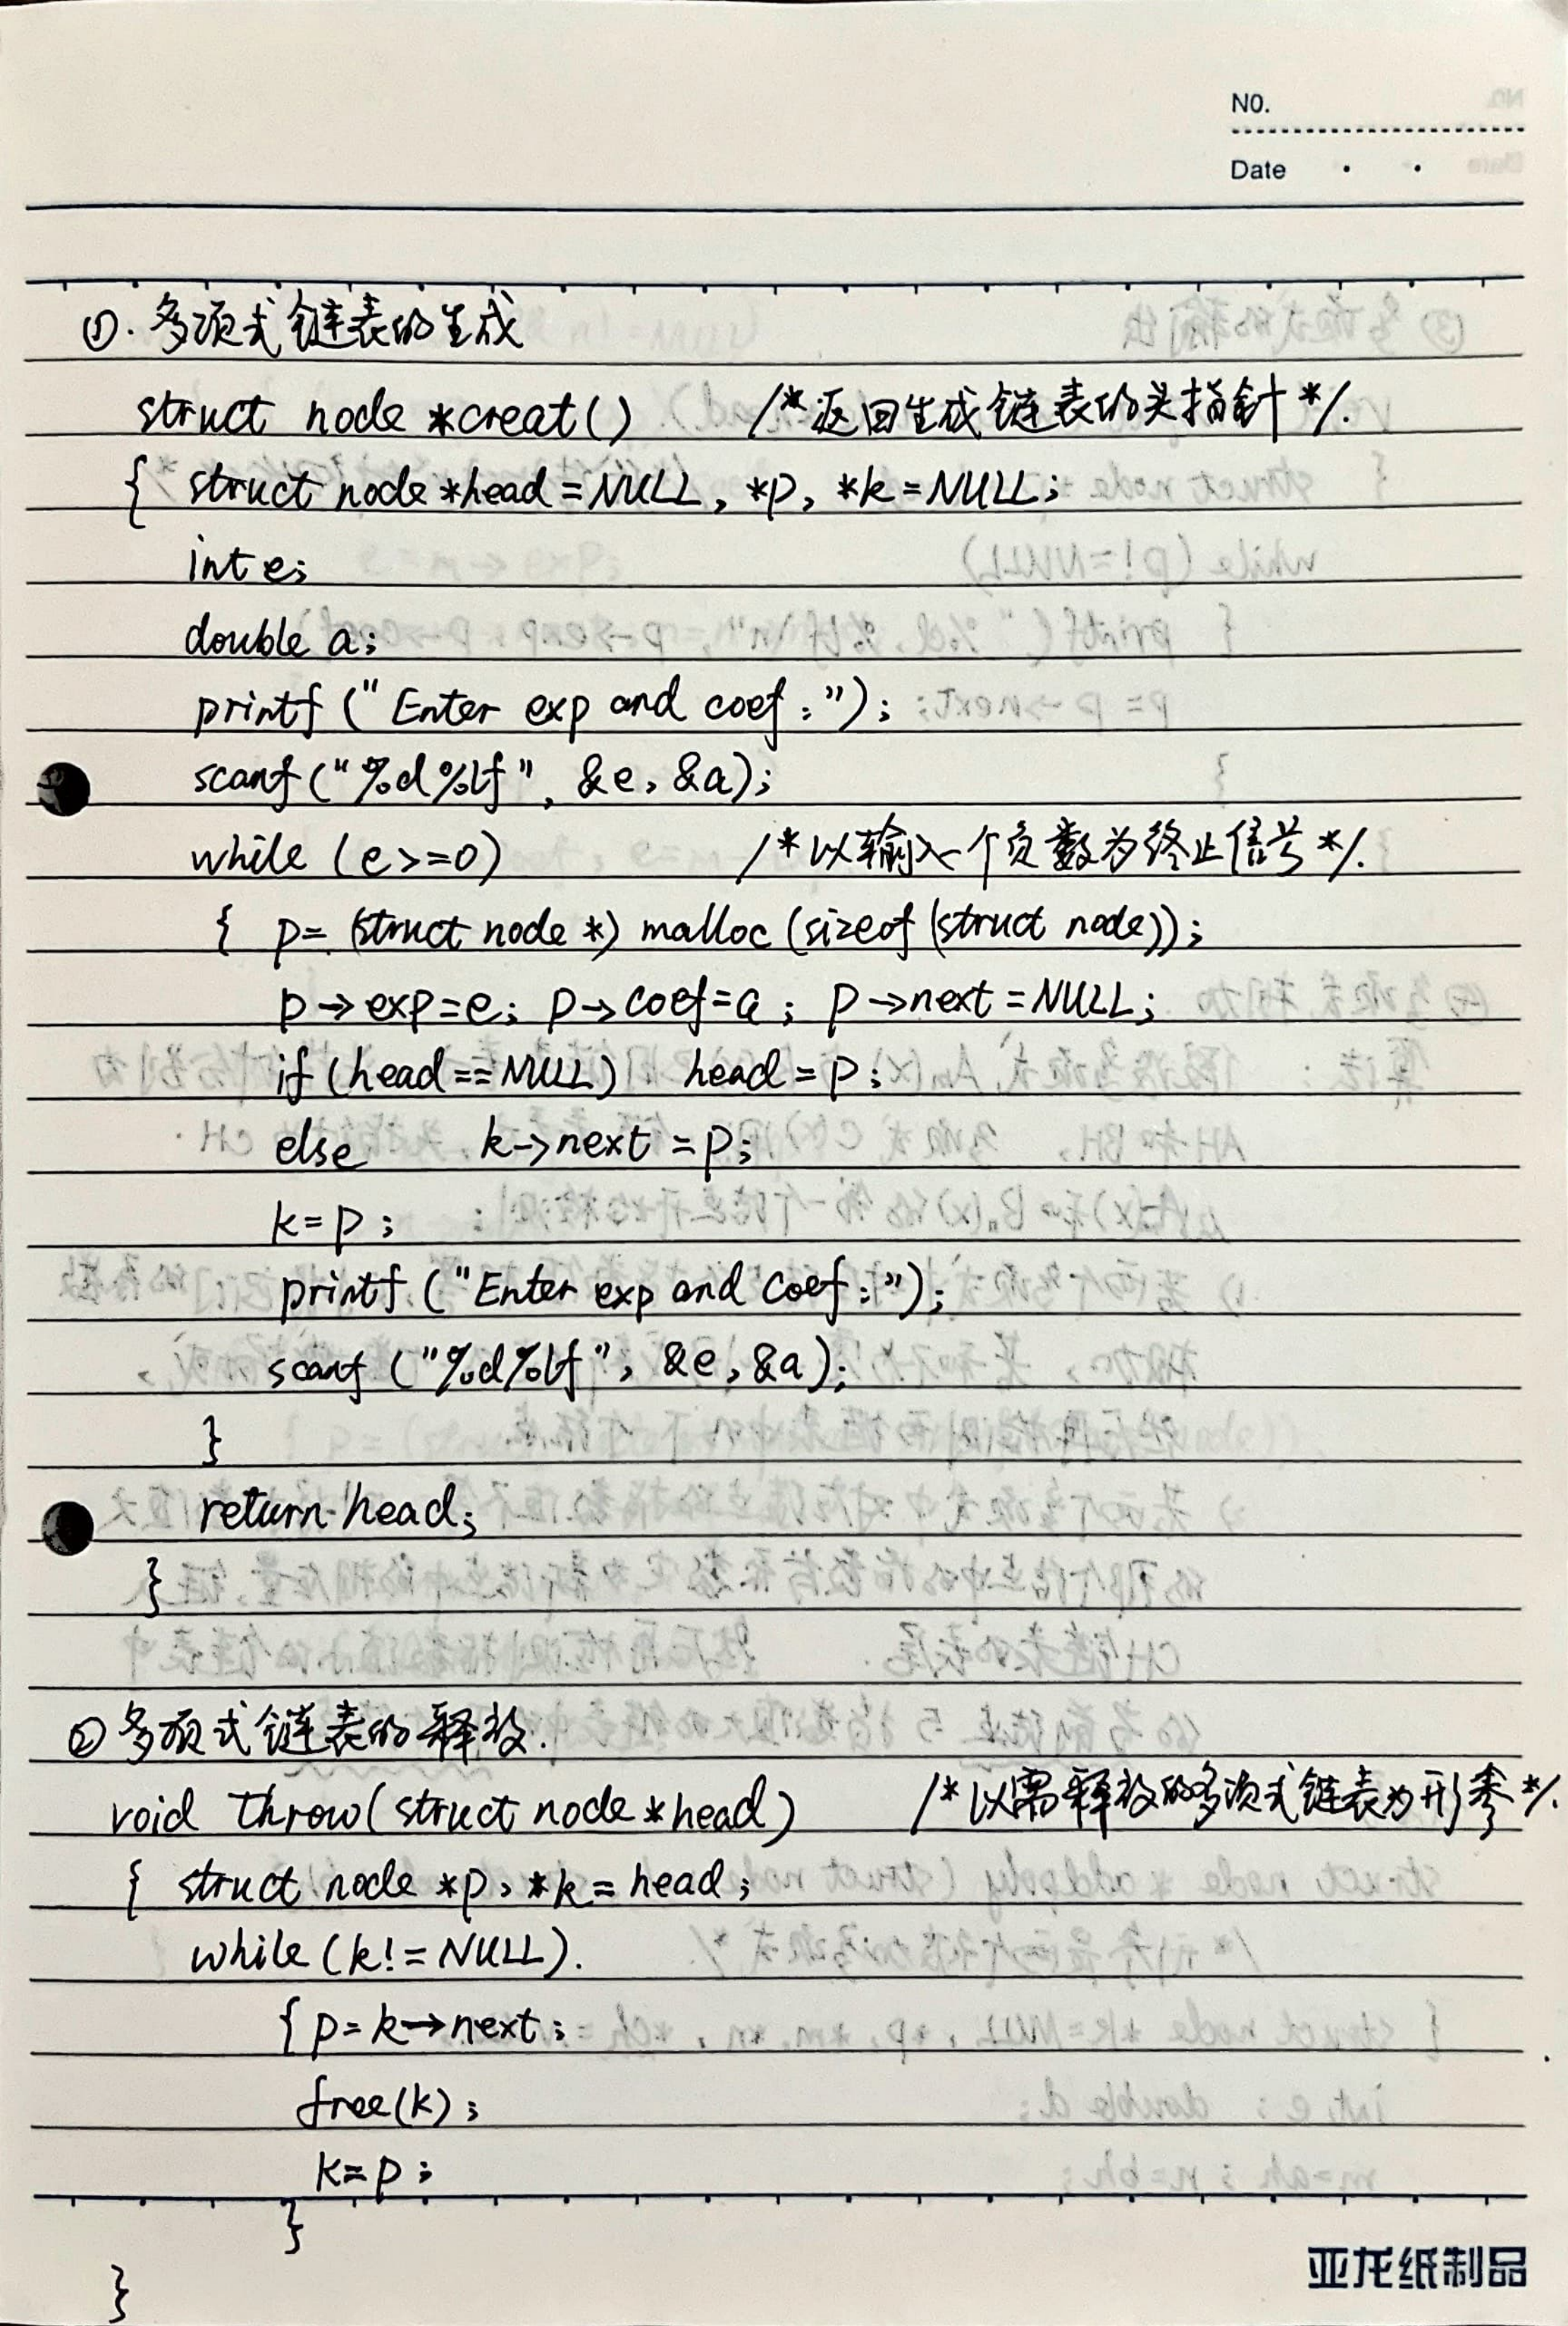 NO.
Date
①. 多项式链表的生成
struct node *creat() /*返回生成链表的头指针*/.
{ struct node *head=NULL, *p, *k=NULL;
int e;
double a;
printf ("Enter exp and coef:");
scanf ("%d%lf", &e, &a);
while (e>=0) /*以输入个负数为终止信号*/.
{ p= (struct node *) malloc (sizeof (struct node));
p->exp=e; p->coef=a; p->next=NULL;
if (head==NULL) head=p;
else k->next=p;
k=p;
printf ("Enter exp and coef:");
scanf ("%d%lf", &e, &a);
}
return head;
}
② 多项式链表的释放.
void throw(struct node *head) /*以需释放的多项式链表为形参*/.
{ struct node *p, *k=head;
while (k!=NULL).
{ p=k->next;
free(k);
k=p;
}
}
亚龙纸制品